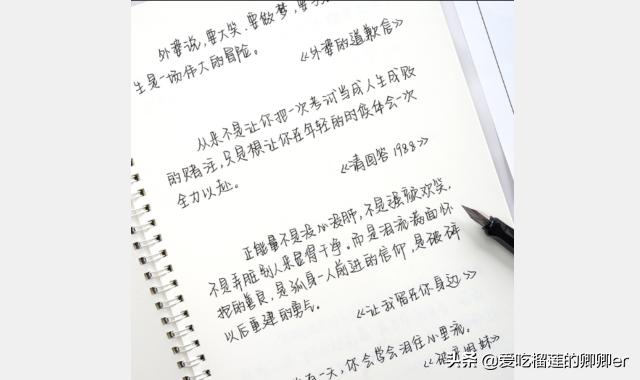 外婆说，要大笑，要做梦，要与
生是一场伟大的冒险。
《外婆的道歉信》
从来不是让你把一次考试当成人生成败
的赌注，只是想让你在年轻的时候体会一次
全力以赴。
《请回答1988》
正能量不是没心没肺，不是强颜欢笑，
不是弄脏别人来显得干净。而是泪流满面怀
抱的善良，是孤身一人前进的信仰，是破碎
以后重建的勇气。
《让我留在你身边》
有一天，你会学会泪往心里流。
头条 @爱吃榴莲的卿卿er